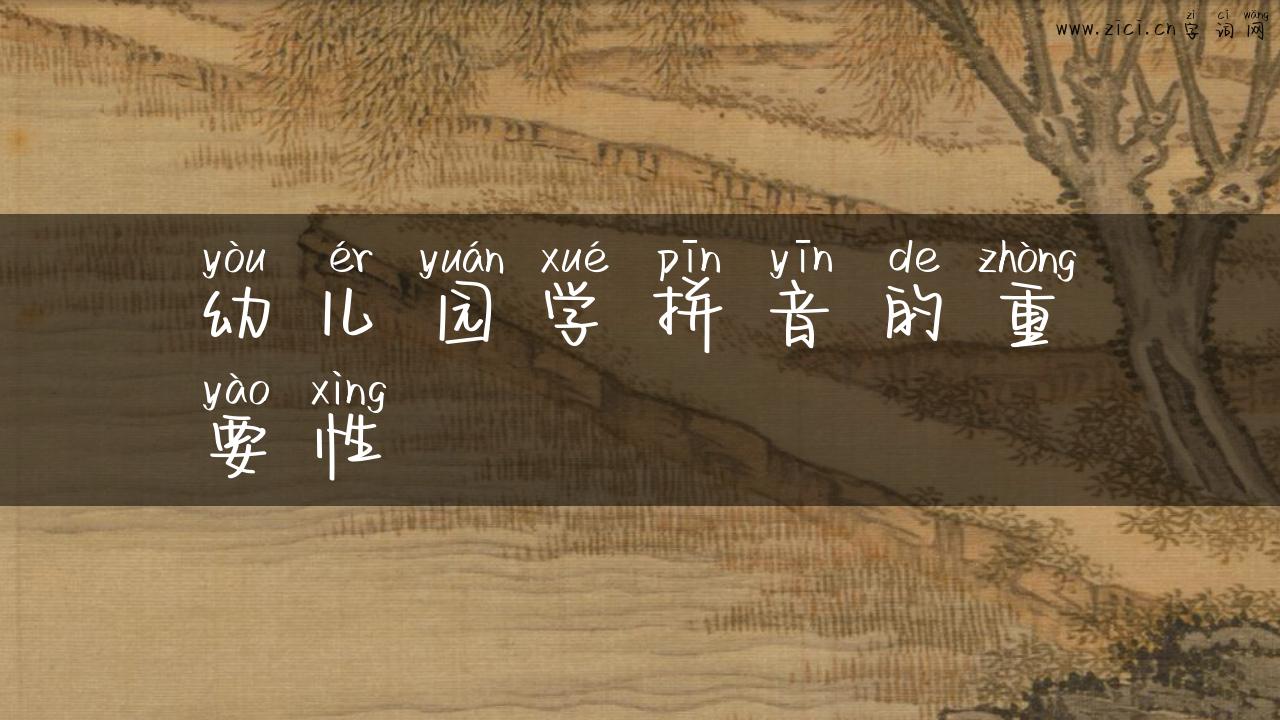 zì cí wǎng
www.zici.cn字词网
yòu ér yuán xué pīn yīn de zhòng
幼儿园学拼音的重
yào xìng
要性